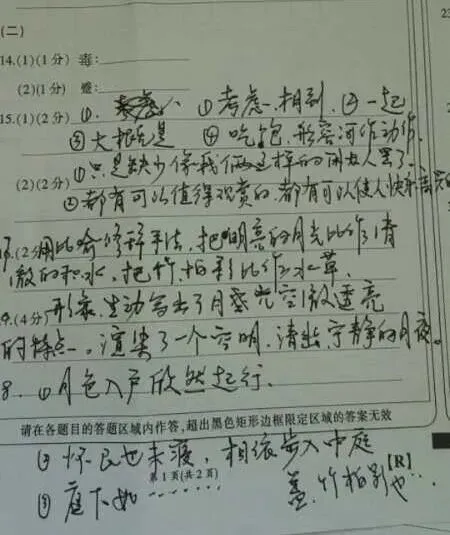 (二)
14.(1)(1分) 毒:
(2)(1分) 蹙:
15.(1)(2分) ①. ①考虑、想到. ②一起
③大概是 ④吃饱.形容词作动作.
(2)(2分) ①只是缺少像我俩这样的闲人罢了.
②都有可以值得观赏的.都有可以使人快乐高兴的
(2分)用比喻修辞手法,把明亮的月光比作清
澈的积水,把竹.柏影比作水草.
(4分) 形象.生动写出了月
的特点.渲染了一个空明.清幽.宁静的月夜。
8. ①月色入户欣然起行.
请在各题目的答题区域内作答,超出黑色矩形边框限定区域的答案无效
②怀民也未寝,相 步入中庭
第1页(共2页)
③庭下如…… 盖.竹柏影也…
【R】
2